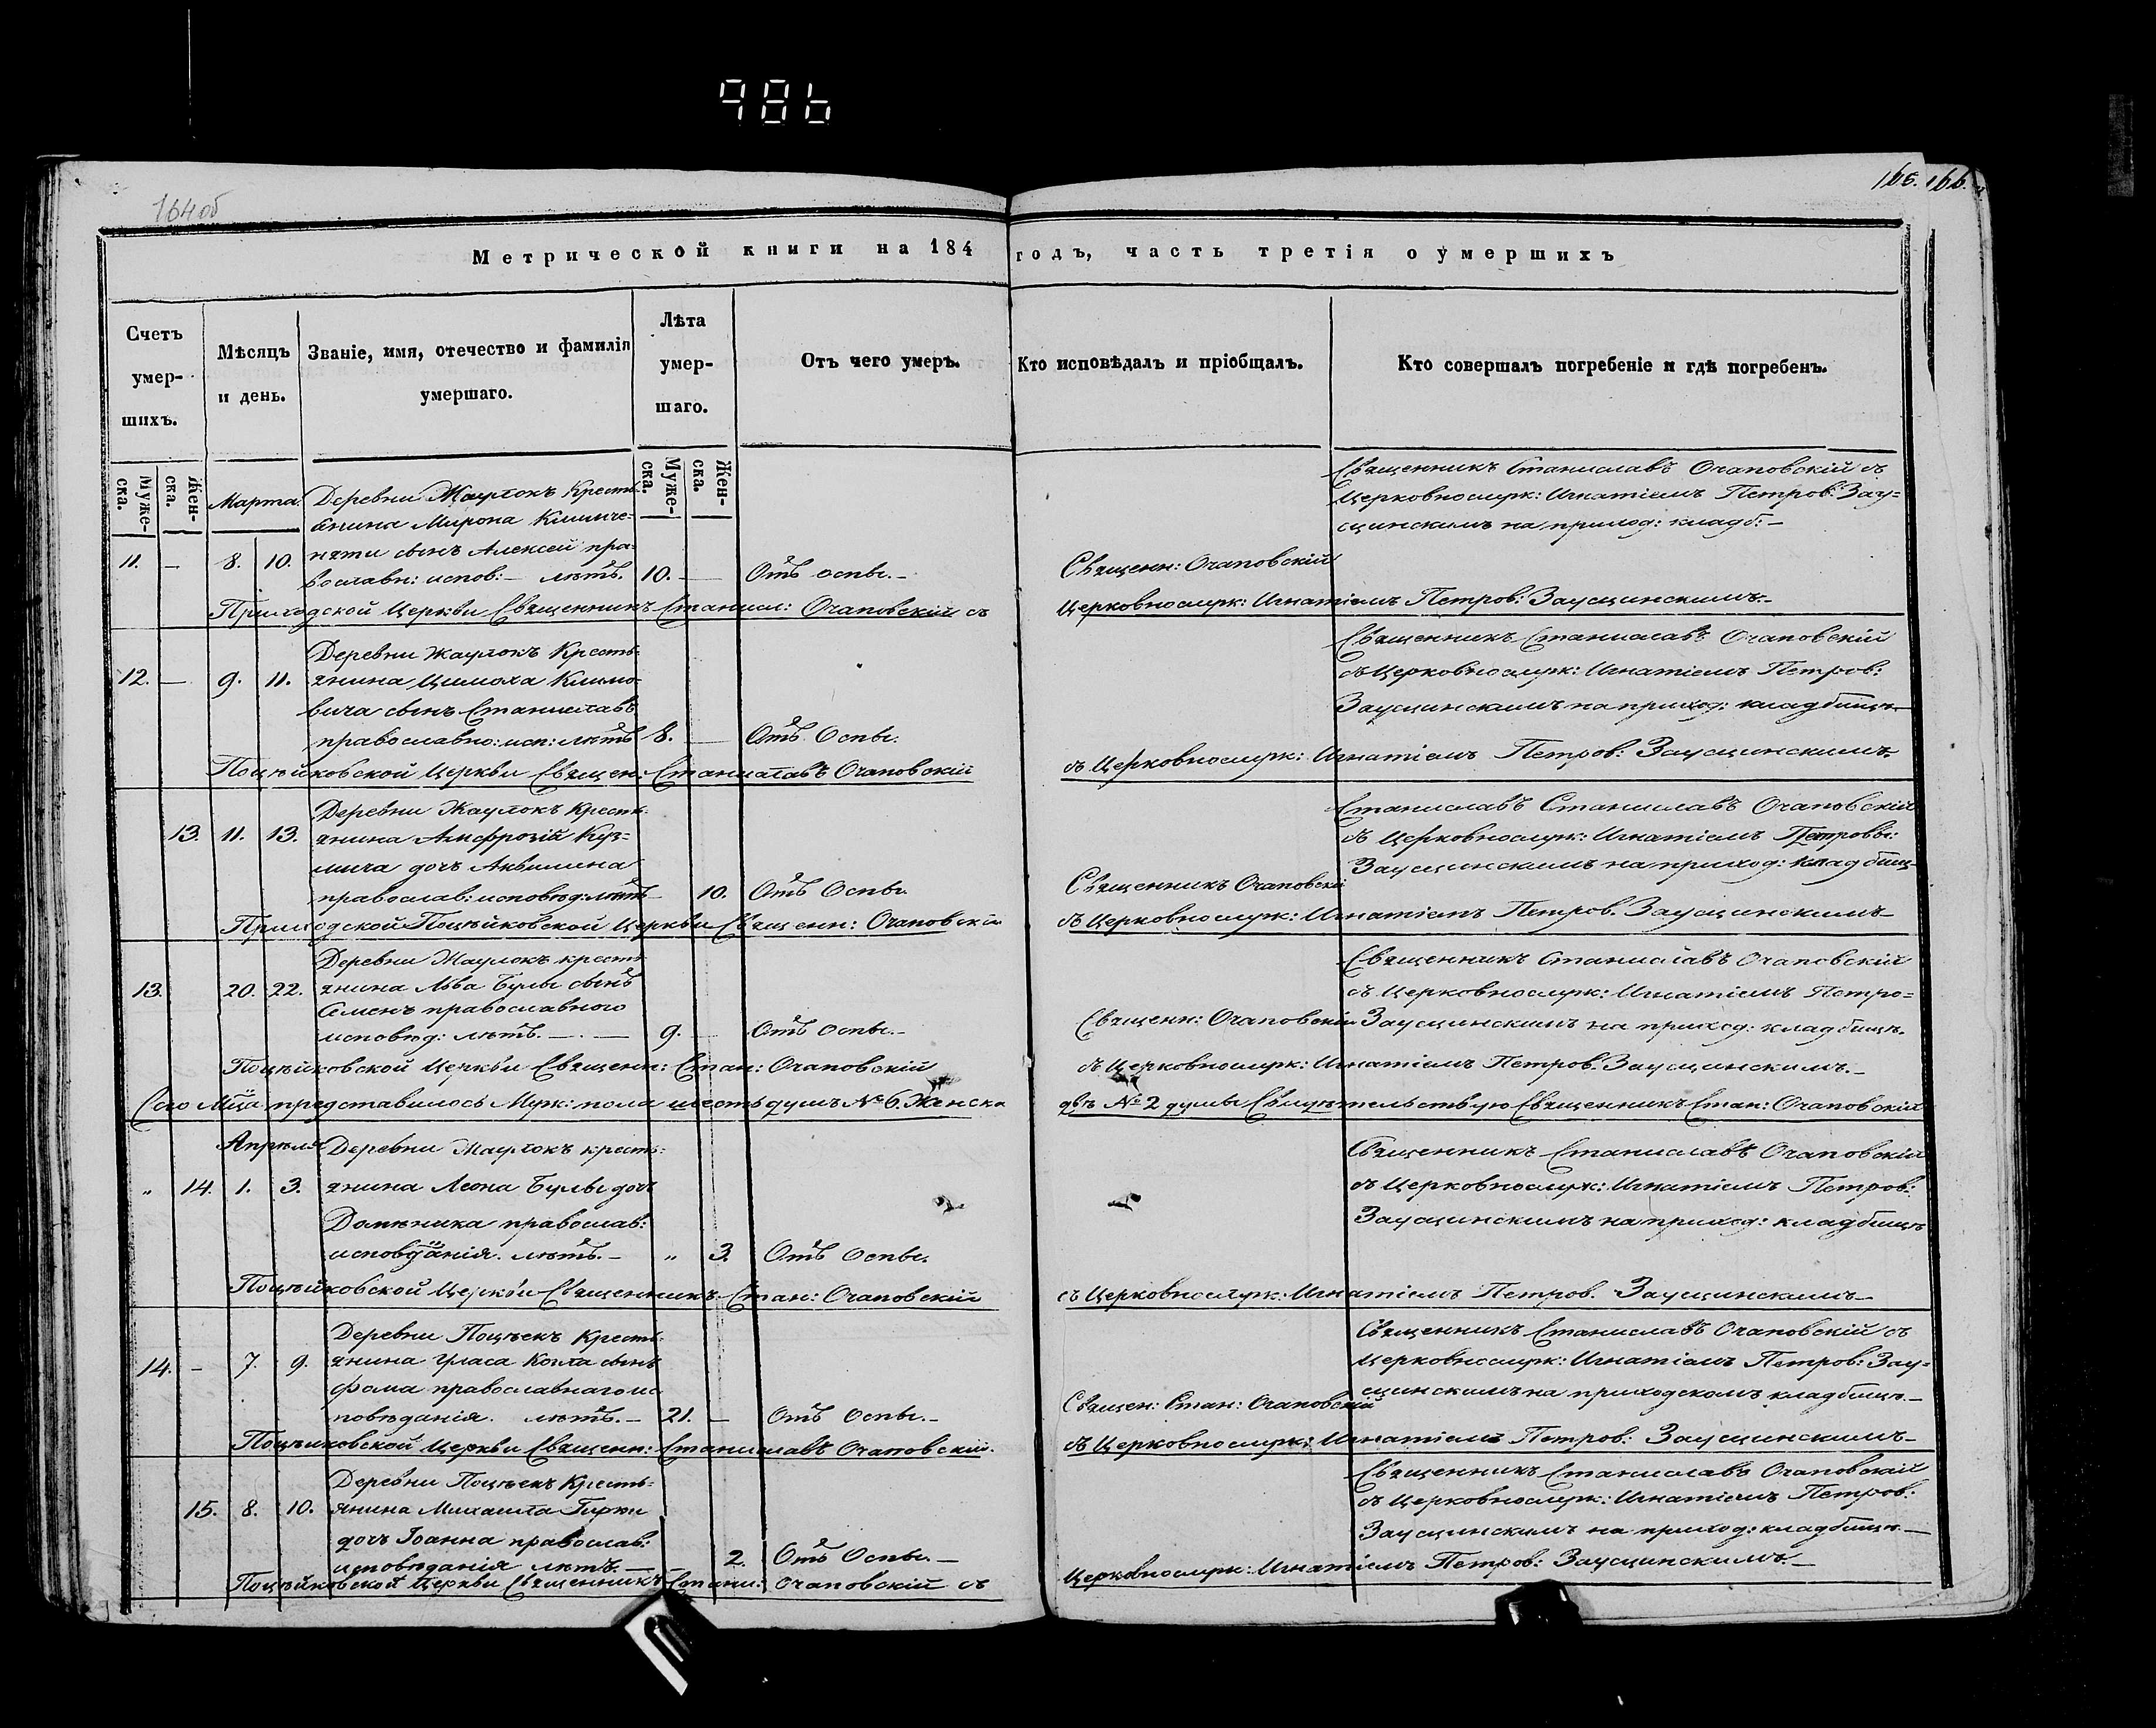 986
164 об
165. 166.
Метрической книги на 184 годъ, часть третія о умершихъ
Счетъ умер-шихъ.
Мѣсяцъ и день.
Званіе, имя, отечество и фамилія умершаго.
Лѣта умер-шаго.
Отъ чего умеръ.
Кто исповѣдалъ и пріобщалъ.
Кто совершалъ погребеніе и гдѣ погребенъ.
Муже-ска.
Жен-ска.
Муже-ска.
Жен-ска.
Марта
Деревни Жаулокъ Кресть-
янина Мирона Климче-
11. — 8. 10. няти сынъ Алексей пра-
вославн: испов: — лѣтъ. 10. — Отъ оспы. —
Священн: Очаповскій
Священникъ Станиславъ Очаповскій съ
Церковнослуж: Игнатіемъ Петров: Зау-
сцинскимъ на приход: кладб: —
Приходской Церкви Священникъ Станисл: Очаповскій съ
Церковнослуж: Игнатіемъ Петров: Заусцинскимъ. —
Деревни Жаулокъ Кресть-
12. — 9. 11. янина Цимоха Климо-
вича сынъ Станиславъ
православно: исп: лѣтъ 8. — Отъ Оспы.
Священникъ Станиславъ Очаповскій
съ Церковнослуж: Игнатіемъ Петров:
Заусцинскимъ на приход: кладбищѣ —
Поцѣйковской Церкви Священ: Станиславъ Очаповскій
съ Церковнослуж: Игнатіемъ Петров: Заусцинскимъ.
Деревни Жаулокъ Кресть-
13. 11. 13. янина Амфрозій Куз-
мича дочъ Аквилина
православ: исповѣд: лѣтъ 10. Отъ Оспы
Священникъ Очаповскій
Станиславъ Станиславъ Очаповскій
съ Церковнослуж: Игнатіемъ Петровы:
Заусцинскимъ на приход: кладбищ
Приходской Поцѣйковской Церкви Священн: Очаповскій
съ Церковнослуж: Игнатіемъ Петров. Заусцинскимъ —
Деревни Жаулокъ кресть
13. 20. 22. янина Льва Булы сынъ
Семенъ православного
исповѣд: лѣтъ. — . — 9. — Отъ оспы. —
Священн: Очаповскій
Священникъ Станиславъ Очаповскій
съ Церковнослуж: Игнатіемъ Петро=
Заусцинскимъ на приход: кладбищѣ.
Поцѣйковской Церкви Священн: Стан: Очаповскій
съ Церковнослуж: Игнатіемъ Петров. Заусцинскимъ. —
Сего Мца представилось Муж: пола шесть душъ № 6. Женска
двѣ № 2 душы Свидѣтельствую Священникъ Стан: Очаповскій
Апрѣля Деревни Жаулокъ кресть:
„ 14. 1. 3. янина Леона Булы дочъ
Доминика православ:
исповѣданія. лѣтъ. — „ 3. Отъ Оспы.
Священникъ Станиславъ Очаповскій
съ Церковнослуж: Игнатіемъ Петров:
Заусцинскимъ на приход: кладбищѣ
Поцѣйковской Церкви Священникъ Стан: Очаповскій
съ Церковнослуж: Игнатіемъ Петров. Заусцинскимъ —
Деревни Поцѣекъ Кресть-
14. — 7. 9. янина Уласа Котла сынъ
Фома православнаго ис
повѣданія. лѣтъ. — 21. — Отъ Оспы. —
Священ: Стан: Очаповскій
Священникъ Станиславъ Очаповскій съ
Церковнослуж: Игнатіемъ Петров: Зау=
сцинскимъ на приходскомъ кладбищѣ —
Поцѣйковской Церкви Священн: Станиславъ Очаповскій.
съ Церковнослуж: Игнатіемъ Петров: Заусцинскимъ —
Деревни Поцѣекъ Кресть-
15. 8. 10. янина Михаила Гирки
дочъ Іоанна православ:
исповѣданія лѣтъ. — 2. Отъ Оспы. —
Священникъ Станиславъ Очаповскій
съ Церковнослуж: Игнатіемъ Петров:
Заусцинскимъ на приход: кладбищѣ —
Поцѣйковской Церкви Священникъ Станисл: Очаповскій съ
Церковнослуж: Игнатіемъ Петров: Заусцинскимъ. —